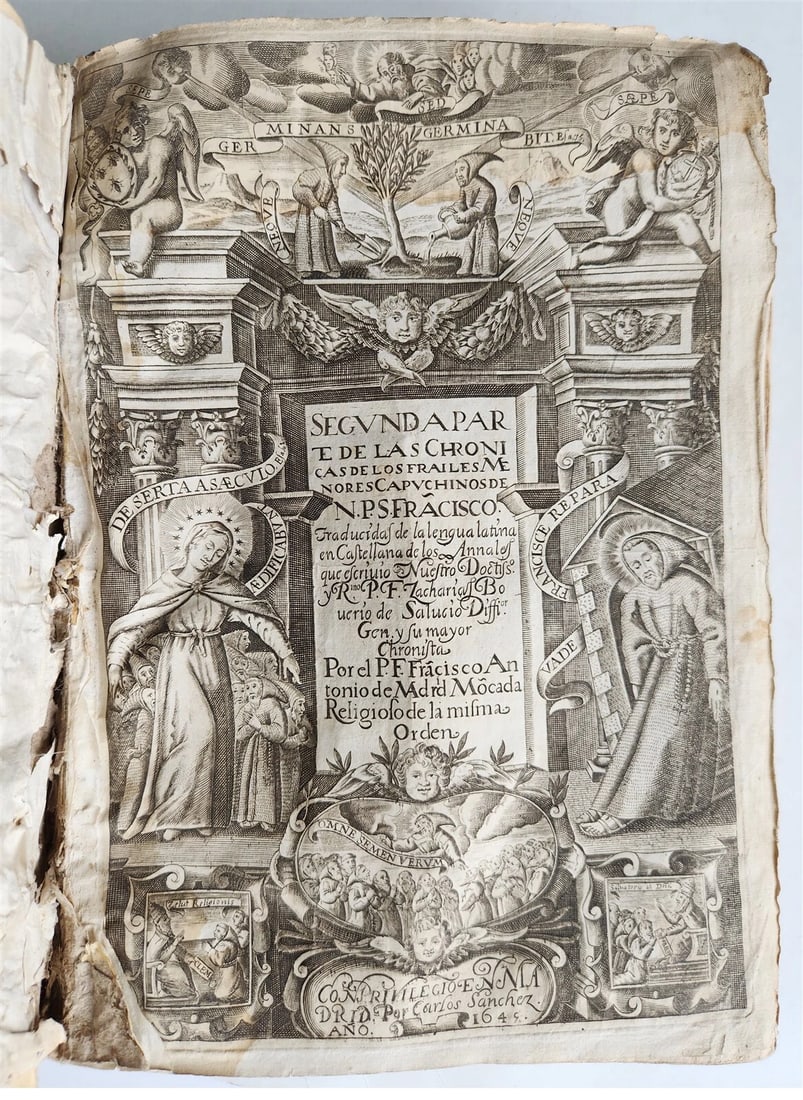 SPE
SED
SÆPE
GER MINANS GERMINA BITE
NEQVE
NEQVE
SEGVNDA PAR
TE DE LAS CHRONI
CAS DE LOS FRAILES ME
NORES CAPVCHINOS DE
N.P.S. FRÃCISCO.
Traducidas de la lengua latina
en Castellana de los Annales
que escriuio Nuestro Doctiss.º
y R.mo P. F. Zacharias Bo
uerio de Salucio Diffi.or
Gen. y su mayor
Chronista
Por el P. F. Frãcisco An
tonio de Madrd Mõcada
Religioso de la misma
Orden
DESERTA A SÆCVLO
ÆDIFICABVNT
VADE FRANCISCE REPARA
OMNE SEMEN VERVM
Zelus Religionis
CON PRIVILEGIO EN MA
DRID. Por Carlos Sanchez.
AÑO. 1645.